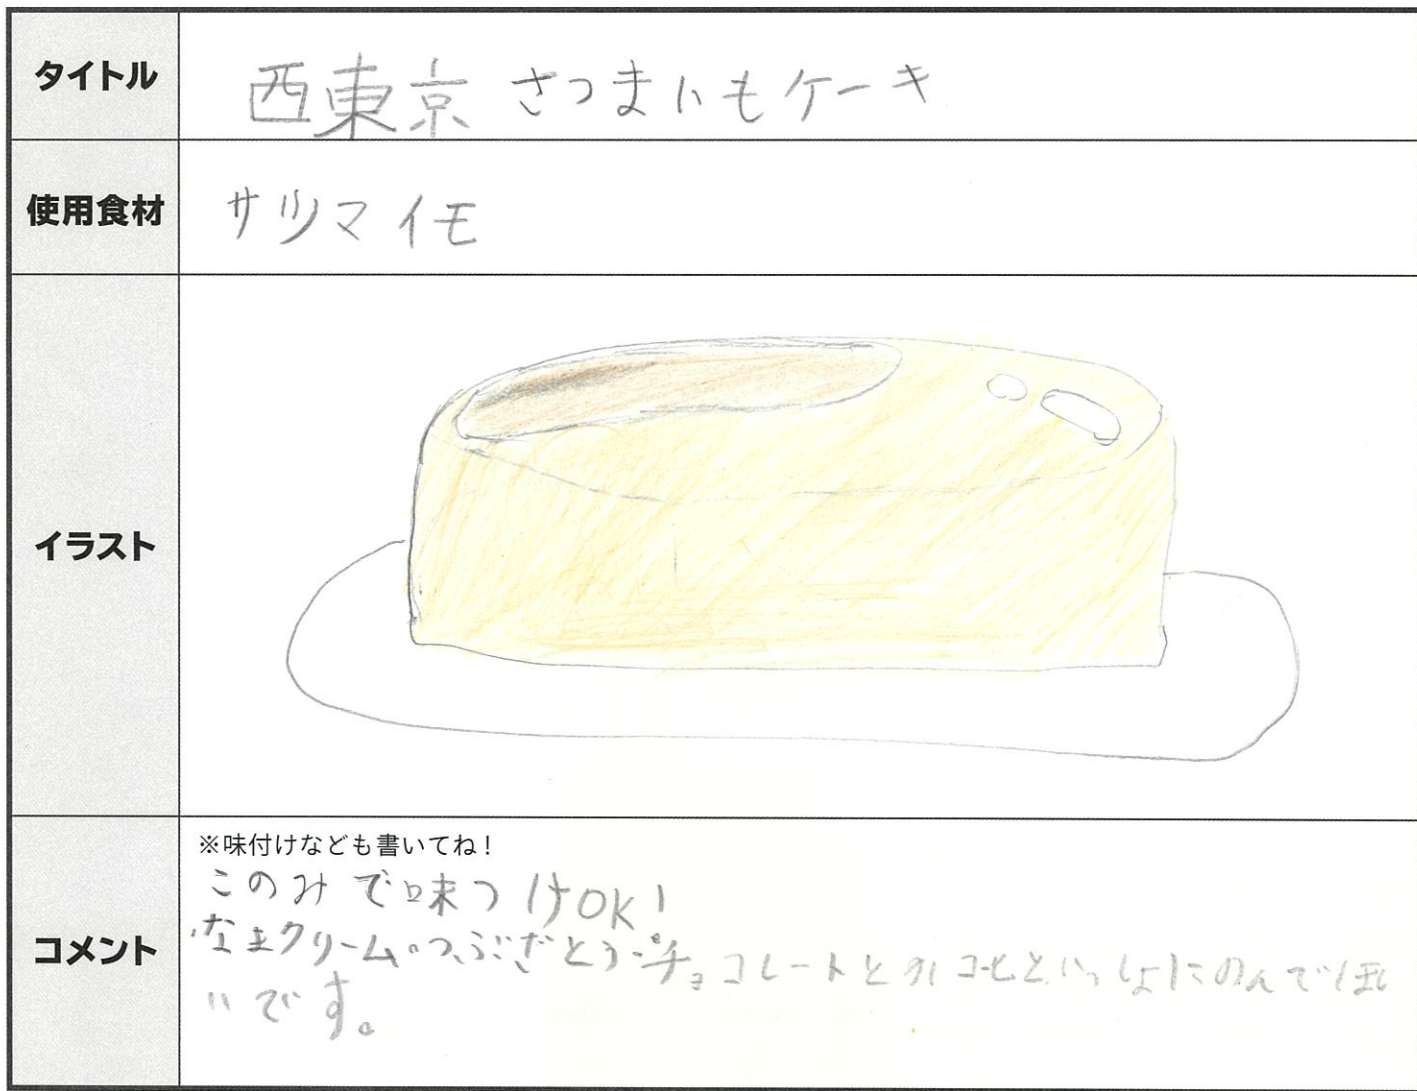 タイトル
西東京 さつまいもケーキ
使用食材
サツマイモ
イラスト
コメント
※味付けなども書いてね!
このみで味つけOK!
な生クリーム。つぶざとう。チョコレートと コーヒといっしょにのんでほし
いです。